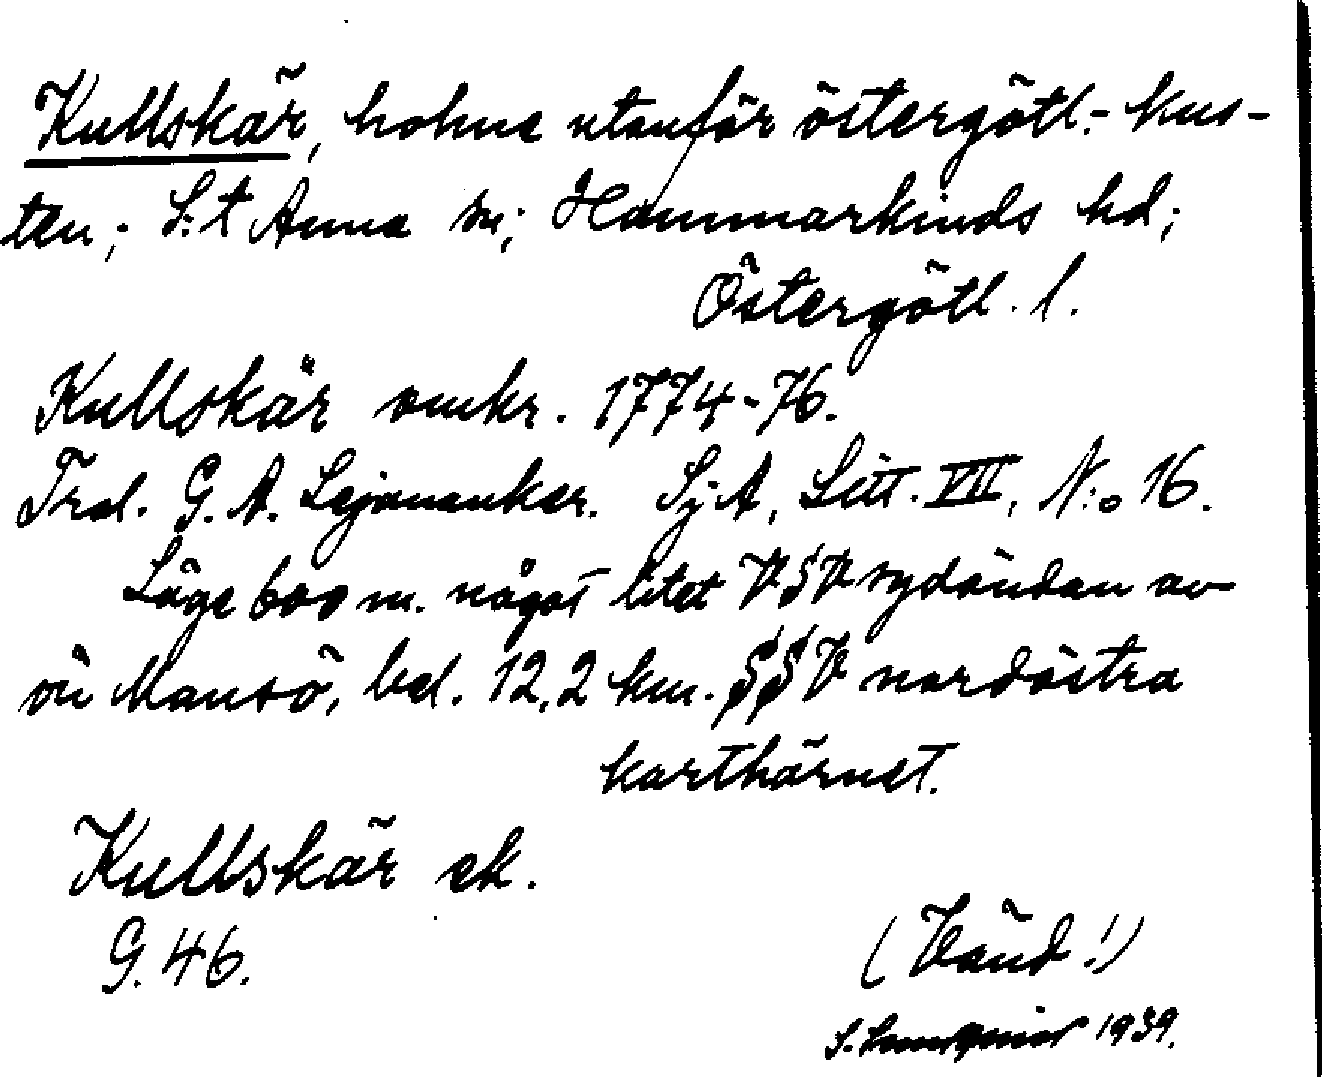 Kullskär, holme utanför östergötl.-kus-
ten; S:t Anna sn; Hammarkinds hd;
Östergötl. l.
Kullskär omkr. 1774-76.
Fred. G. A. Lejonanker. SjA, Litt. VII, N:o 16.
Läge 600 m. något litet VSV sydändan av
ön Mansö, bel. 12,2 km. SSV nordöstra
karthörnet.
Kullskär ek.
G. 46.
(Vänd!)
S. 1939.